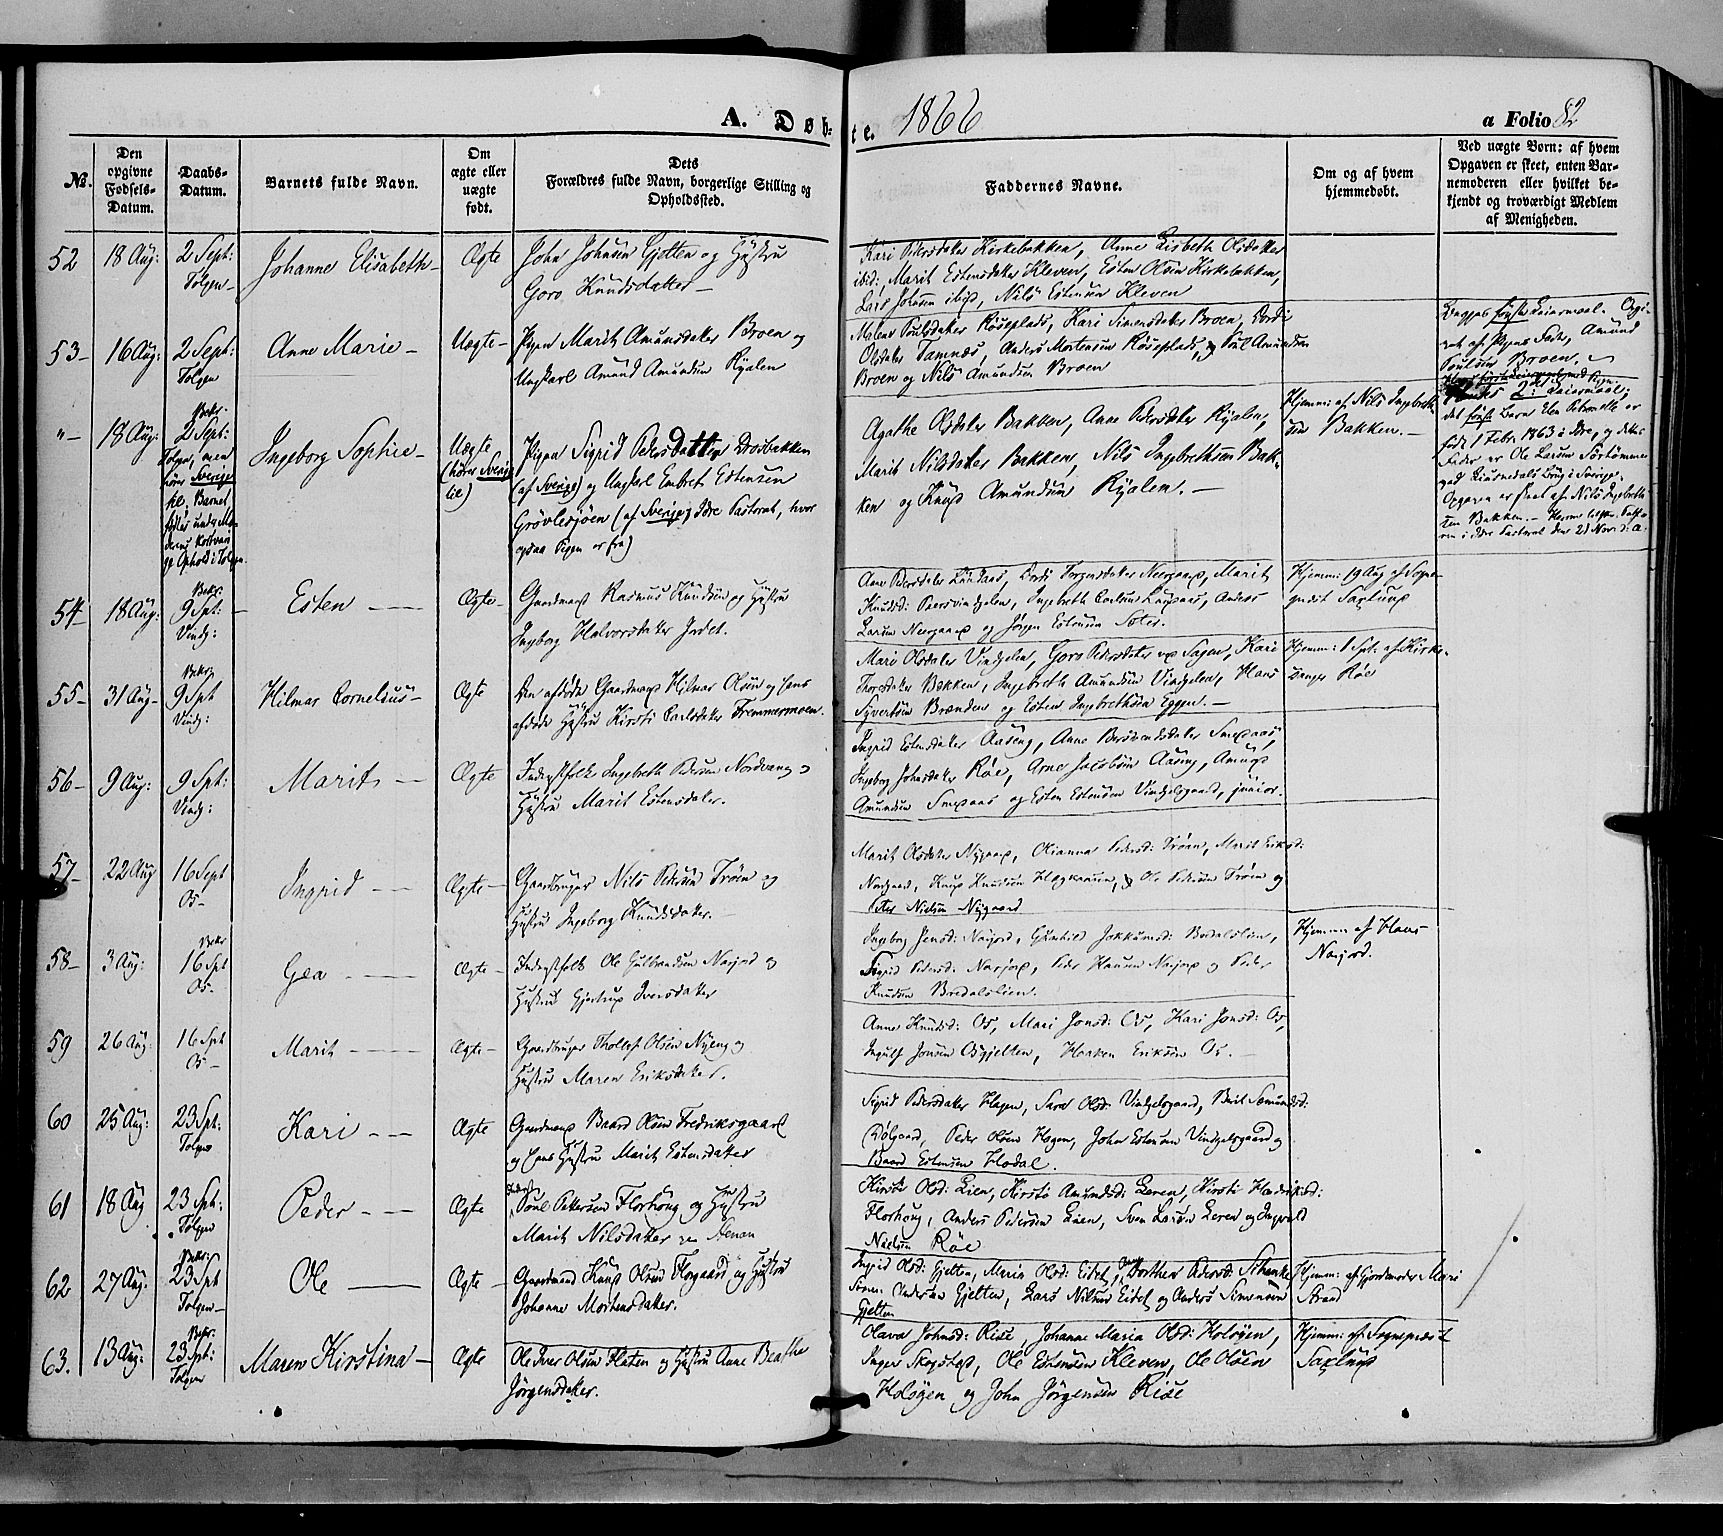 A. Døb-
te. 1866
a Folio 82
№.
Den opgivne Fødsels-Datum.
Daabs-Datum.
Barnets fulde Navn.
Om ægte eller uægte født.
Dets Forældres fulde Navn, borgerlige Stilling og Opholdssted.
Faddernes Navne.
Om og af hvem hjemmedøbt.
Ved uægte Børn: af hvem Opgaven er skeet, enten Barnemoderen eller hvilket bekjendt og troværdigt Medlem af Menigheden.
52 18 Aug: 2 Sept: Tolgen Johanne Elisabeth Ægte
John Johnsen Gjelten og Hustru
Goro Knudsdatter
Kari Pedersdatter Kirkebakken, Anne Lisbeth Olsdatter
ibid: Marit Estensdatter Kleven, Esten Olsen Kirkebakken,
Lars Johnsen ibid, Nils Estensen Kleven
53 16 Aug: 2 Sept: Tolgen Anne Marie Uægte
Pigen Marit Amundsdatter Broen og
Ungkarl Amund Amundsen Ryalen
Malene Poulsdatter Røseplads, Kari Simensdatter Broen, Dordi
Olsdatter Tamnæs, Anders Mortensen Røseplads, Poul Amundsen
Broen og Nils Amundsen Broen
Begges første Leiermaal. Opgi-
vet af Pigens Fader, Amund
Poulsen Broen.
"- 18 Aug: Bekr: 2 Sept: Tolgen, men hører Sverige til, Barnet
Ingeborg Sophie Uægte (hører Sverige til)
Pigen Sigrid Pedersdatter
(af Sverige) og Ungkarl Embret Estensen
Grövlesjøen (af Sverige) Idre Pastorat, hvor
ogsaa Pigen er fra)
Agathe Olsdatter Bakken, Anne Pedersdatter Ryalen,
Marit Nilsdatter Bakken, Nils Ingebrethsen Bak-
ken og Knud Amundsen Ryalen.
Hjemm: af Nils Ingebreth-
sen Bakken.
2det Leiermaal;
det første Barn Elen Petronelle er
født 1 Febr. 1863 i Idre, og dettes
Fader er Ole Larsen
Opgaven er skeet af Nils Ingebreth-
sen Bakken.
54 18 Aug: Bekr: 9 Spt: Vindj: Esten Ægte
Gaardmand Rasmus Knudsen og Hustru
Ingeborg Halvorsdatter Jordet.
Ingebreth Carlsen
Larsen Neergaard og Jørgen Estensen
Hjemm: 19 Aug af Sogne-
præst Saxlund
55 31 Aug Bekr: 9 Spt Vindj: Hilmar Cornelius Ægte
Den afdøde Gaardmand Hilmar Olsen og Hans
afdøde Hustru Kirsti Carlsdatter Fremmermoen.
Mari Olsdatter Vindjelen, Goro Pedersdatter Sagen, Kari
Thoresdatter Bakken, Ingebreth Amundsen Vindjelen, Hans
Syvertsen Brænden og Esten Ingebrethsen Eggen.
Hjemm: 1 Spt: af Kirke-
sanger Røe
56 9 Aug: 9 Spt: Vindj: Marit Ægte
Inderstfolk Ingebreth Pedersen Nordvang og
Hustru Marit Estensdatter.
Ingrid Estensdatter Aaseng, Anne
Ingeborg Johnsdatter Røe, Arne Jacobsen Aaseng, Amund
Amundsen og Esten Estensen Vindjelsgaard, junior.
57 22 Aug 16 Sept Os Ingrid Ægte
Gaardbruger Nils Pedersen Trøen og
Hustru Ingeborg Knudsdatter.
Marit Olsdatter Nygaard, Olianna Pedersd: Trøen, Marit Eriksd:
Nordgaard, Knud Knudsen, Ole Pedersen Trøen og
Peter Nielsen Nygaard
58 3 Aug: Bekr 16 Spt Os. Gea Ægte
Inderstfolk Ole Gulbrandsen Narjord og
Hustru Gjertrud Iversdatter
Ingeborg Jensd: Narjord, Gunhild Jokkumsd: Bredalslien,
Sigrid Pedersd: Narjord, Peder Hansen Narjord og Peder
Knudsen Bredalslien.
Hjemm: af Hans
Narjord.
59 26 Aug: 16 Spt Os Marit Ægte
Gaardbruger Thollef Olsen Nyeng og
Hustru Maren Eriksdatter.
Anne Knudsd: Os, Mari Jonsd: Os, Kari Jonsd: Os,
Ingulf Jonsen Osgjelten, Haaken Eriksen Os.
60 25 Aug: 23 Spt: Tolgen Kari Ægte
Gaardmand Baard Olsen Fredriksgaard
og Hans Hustru Marit Estensdatter
Sigrid Pedersdatter Hagen, Sara Olsd: Vindjelsgaard, Berit Simonsd:
Dølgaard, Peder Olsen Hagen, John Estensen Vindjelsgaard og
Baard Estensen Hodal.
61 18 Aug 23 Spt: Tolgen Peder Ægte
Poul Pettersen Florhoug og Hustru
Marit Nilsdatter
Kirsti Olsd: Lien, Kirsti Amundsd: Leren, Kirsti Hendriksd:
Florhoug, Anders Pedersen Lien, Sven Larsen Leren og Ingvald
Nielsen Røe
62 27 Aug: Bekr: 23 Spt Tolgen Ole Ægte
Gaardmand Knud Olsen Florgaard og Hustru
Johanne Mortensdatter.
Ingrid Olsd: Gjelten, Maria Olsd: Eidet, Dorthea Pedersd: Schanke
Simen Andersen Gjelten, Lars Nilsen Eidet og Anders Simensen
Gjelten
Hjemm: af Gjordmoder Mari
Strand
63. 13 Aug: Bekr: 23 Spt: Tolgen Maren Kirstina Ægte
Ole Iver Olsen Flaten og Hustru Anne Beathe
Jørgensdatter.
Olava Johnsd: Rise, Johanne Maria Olsd: Holøyen,
Inger Skogstad, Ole Estensen Kleven, Ole Olsen
Holøyen og John Jørgensen Rise
Hjemm: af Sognepræst
Saxlund